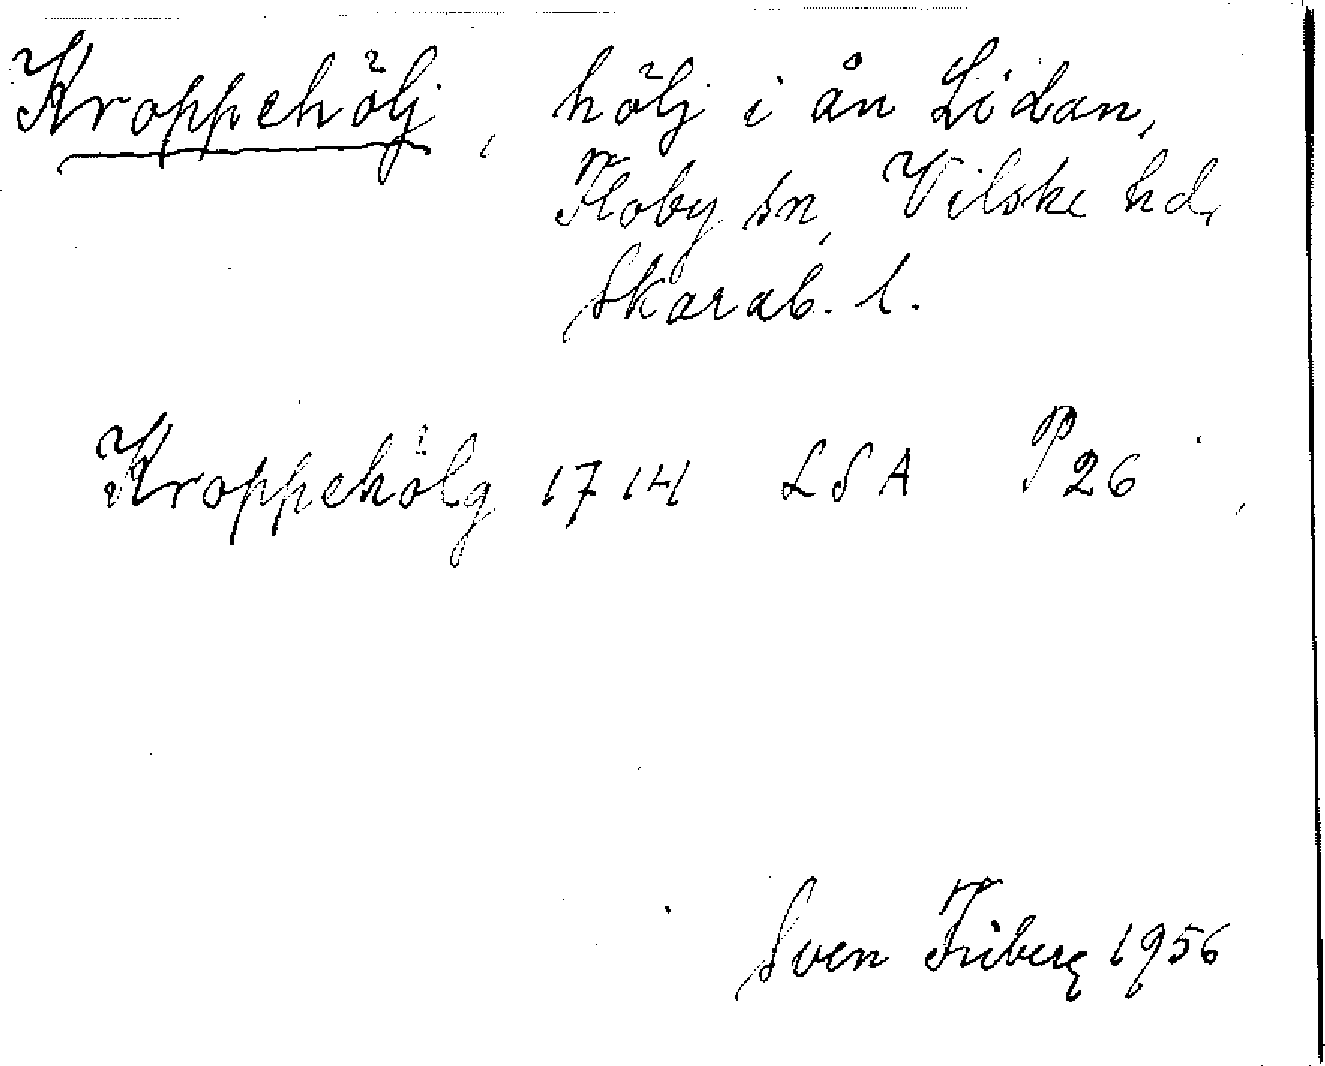 Kroppehölj, hölj i ån Lidan,
Floby sn, Vilske hd,
Skarab. l.
Kroppehölg 1714 LSA P 26
Sven Friberg 1956